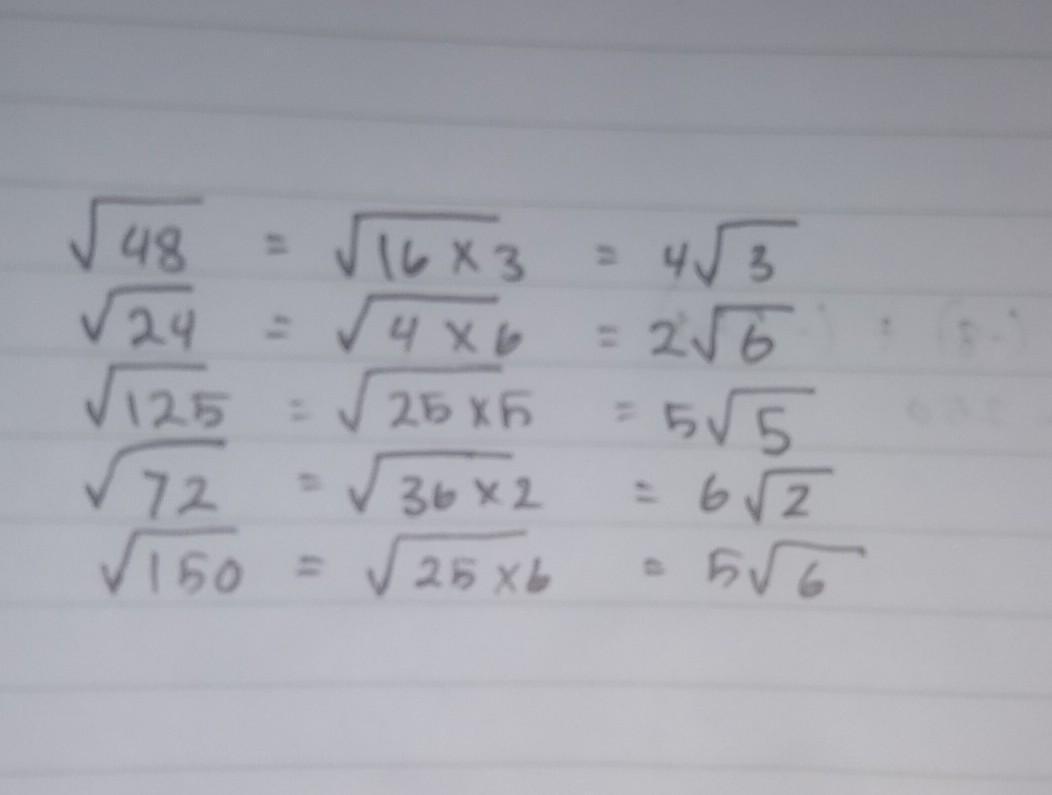 √48 = √16 × 3 = 4√3
√24 = √4 × 6 = 2√6
√125 = √25 × 5 = 5√5
√72 = √36 × 2 = 6√2
√150 = √25 × 6 = 5√6